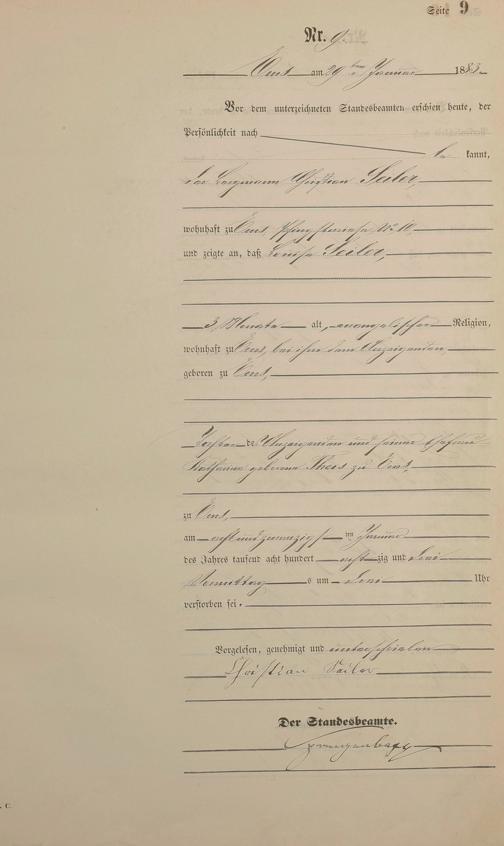 Seite 9
Nr. 9.
Ems am 29ten Januar 1883.
Vor dem unterzeichneten Standesbeamten erschien heute, der
Persönlichkeit nach
be kannt,
der Bergmann Christian Seiler,
wohnhaft zu Ems No 10
und zeigte an, daß Louise Seiler,
3 Monate alt, evangelischer Religion,
wohnhaft zu Ems, bei ihm dem Anzeigenden,
geboren zu Ems,
Tochter des Anzeigenden und seiner Ehefrau
Katharina geborene Thees zu Ems,
zu Ems,
am achtundzwanzigsten Januar
des Jahres tausend acht hundert achtzig und drei
Vormittags um Uhr
verstorben sei.
Vorgelesen, genehmigt und unterschrieben
Christian Seiler
Der Standesbeamte.
C.